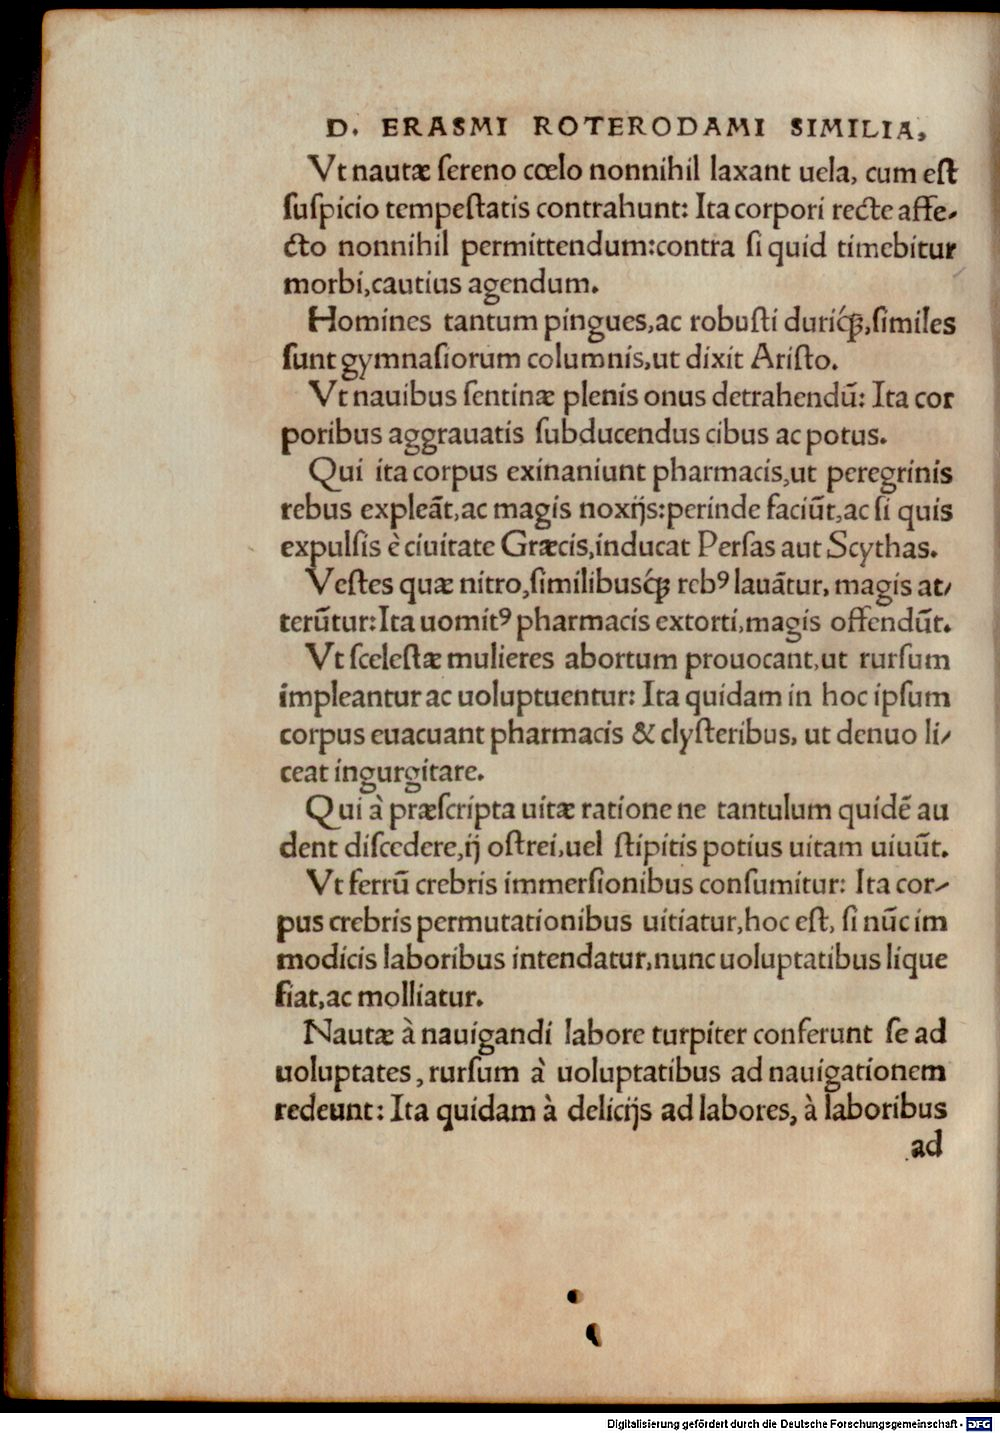 D. ERASMI ROTERODAMI SIMILIA,
Vt nautæ ſereno cœlo nonnihil laxant uela, cum eſt
ſuſpicio tempeſtatis contrahunt: Ita corpori recte affe-
cto nonnihil permittendum:contra ſi quid timebitur
morbi,cautius agendum.
Homines tantum pingues,ac robuſti duriq́ꝫ,ſimiles
ſunt gymnaſiorum columnis,ut dixit Ariſto.
Vt nauibus ſentinæ plenis onus detrahendũ: Ita cor
poribus aggrauatis ſubducendus cibus ac potus.
Qui ita corpus exinaniunt pharmacis,ut peregrinis
rebus expleãt,ac magis noxijs:perinde faciũt,ac ſi quis
expulſis è ciuitate Græcis,inducat Perſas aut Scythas.
Veſtes quæ nitro,ſimilibusq́ꝫ rebꝰ lauãtur, magis at-
terũtur:Ita uomitꝰ pharmacis extorti,magis offendũt.
Vt ſceleſtæ mulieres abortum prouocant,ut rurſum
impleantur ac uoluptuentur: Ita quidam in hoc ipſum
corpus euacuant pharmacis & clyſteribus, ut denuo li-
ceat ingurgitare.
Qui à præſcripta uitæ ratione ne tantulum quidẽ au
dent diſcedere,ij oſtrei,uel ſtipitis potius uitam uiuũt.
Vt ferrũ crebris immerſionibus conſumitur: Ita cor-
pus crebris permutationibus uitiatur,hoc eſt, ſi nũc im
modicis laboribus intendatur,nunc uoluptatibus lique
fiat,ac molliatur.
Nautæ à nauigandi labore turpiter conferunt ſe ad
uoluptates, rurſum à uoluptatibus ad nauigationem
redeunt: Ita quidam à delicijs ad labores, à laboribus
ad
Digitalisierung gefördert durch die Deutsche Forschungsgemeinschaft - DFG